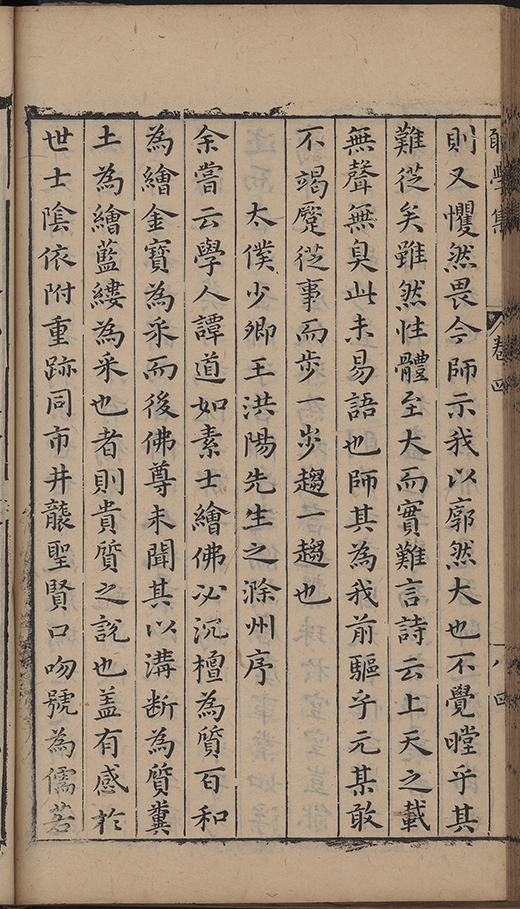 學集 卷四
則又懼然畏今師示我以廓然大也不覺瞠乎其
難從矣雖然性體至大而實難言詩云上天之載
無聲無臭此未易語也師其為我前驅乎元某敢
不竭蹷從事而步一步趨一趨也
太僕少卿王洪陽先生之滁州序
余嘗云學人譚道如素士繪佛必沉檀為質百和
為繪金寶為采而後佛尊未聞其以溝斷為質糞
土為繪藍縷為采也者則貴質之說也盖有感於
世士陰依附重跡同市井襲聖賢口吻號為儒若